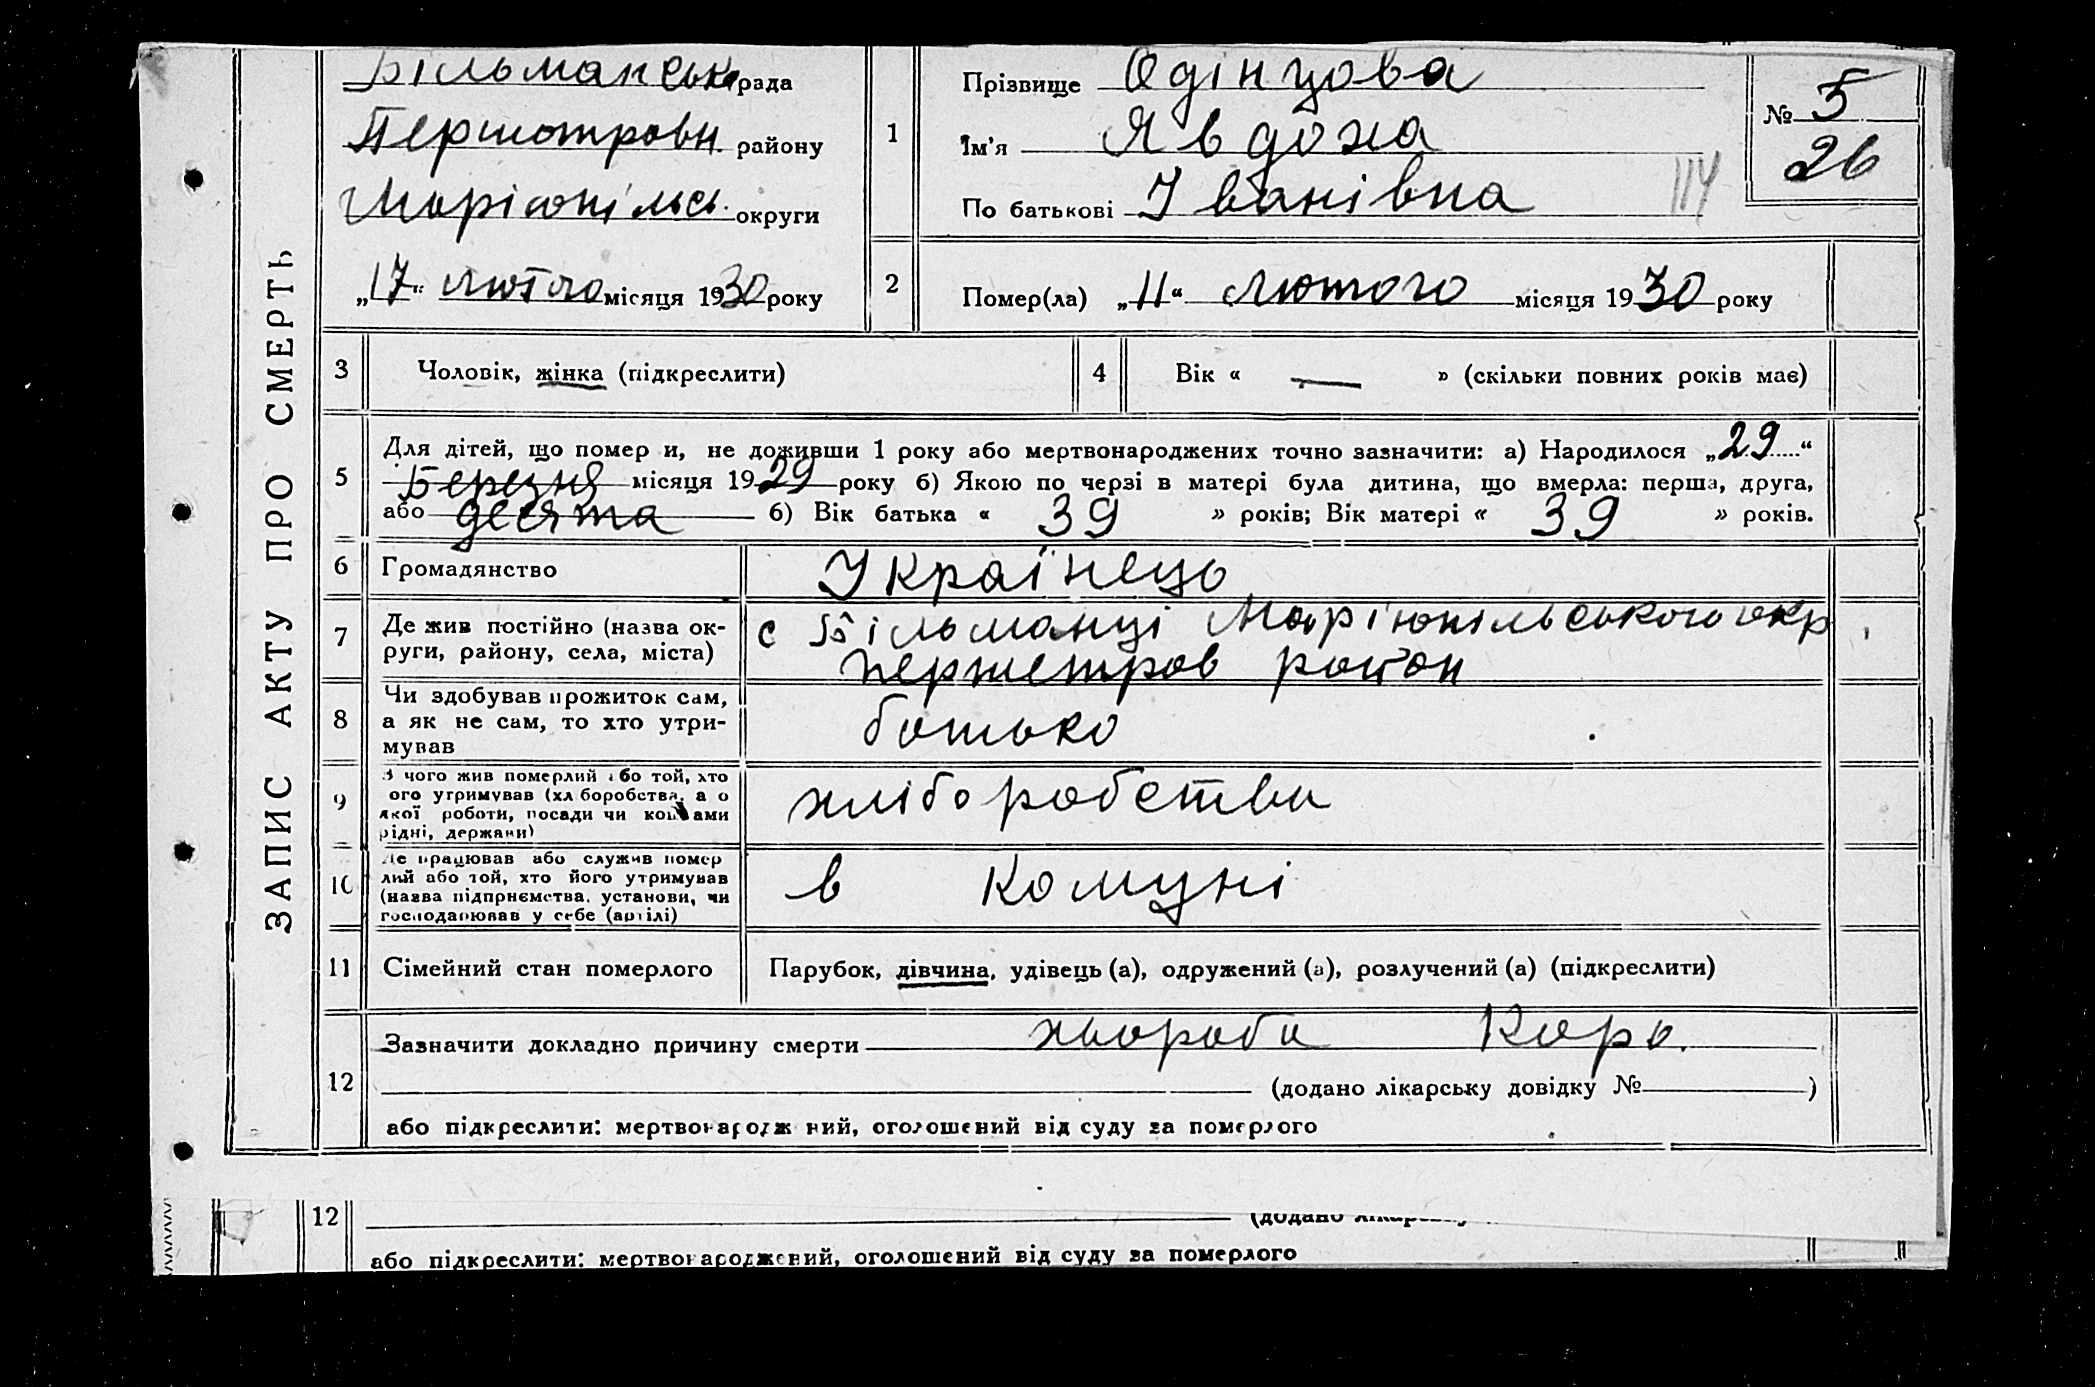 ЗАПИС АКТУ ПРО СМЕРТЬ
Більманська рада
Першотравн. району
Маріюпільсь. округи
„17“ лютого місяця 1930 року
1
Прізвище Одінцова
Ім'я Явдоха
По батькові Іванівна
№ 5
26
114
2
Помер(ла) „11“ лютого місяця 1930 року
3 Чоловік, жінка (підкреслити)
4 Вік « — » (скільки повних років має)
5
Для дітей, що помер и, не доживши 1 року або мертвонароджених точно зазначити: а) Народилося „29“
Березня місяця 1929 року б) Якою по черзі в матері була дитина, що вмерла: перша, друга,
або десята б) Вік батька « 39 » років; Вік матері « 39 » років.
6 Громадянство Українець
7
Де жив постійно (назва ок-
руги, району, села, міста)
с Більманці Маріюпільського окр
першетров район
8
Чи здобував прожиток сам,
а як не сам, то хто утри-
мував
батько
9
З чого жив померлий або той, хто
ого утримував (хл боробства, а о
якої роботи, посади чи коштами
рідні, держави)
хліборобства
10
Де працював або служив помер
лий або той, хто його утримував
(назва підприємства, установи, чи
господарював у себе (артілі)
в комуні
11 Сімейний стан померлого Парубок, дівчина, удівець (а), одружений (а), розлучений (а) (підкреслити)
12
Зазначити докладно причину смерти хвороба Корь.
(додано лікарську довідку № )
або підкреслити: мертвонародж ний, оголошений від суду за померлого
12 (додано лікарську
або підкреслити: мертвонароджений, оголошений від суду за померлого